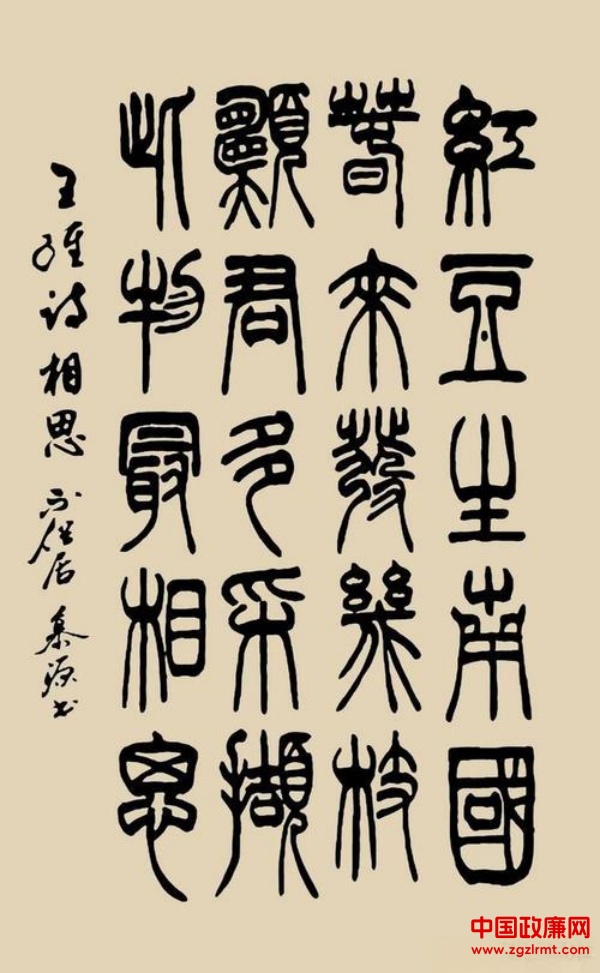 紅豆生南國
春來發幾枝
願君多采擷
此物最相思
王維诗相思 不俗居 秦源书
中国政廉网
www.zgzlrmt.com